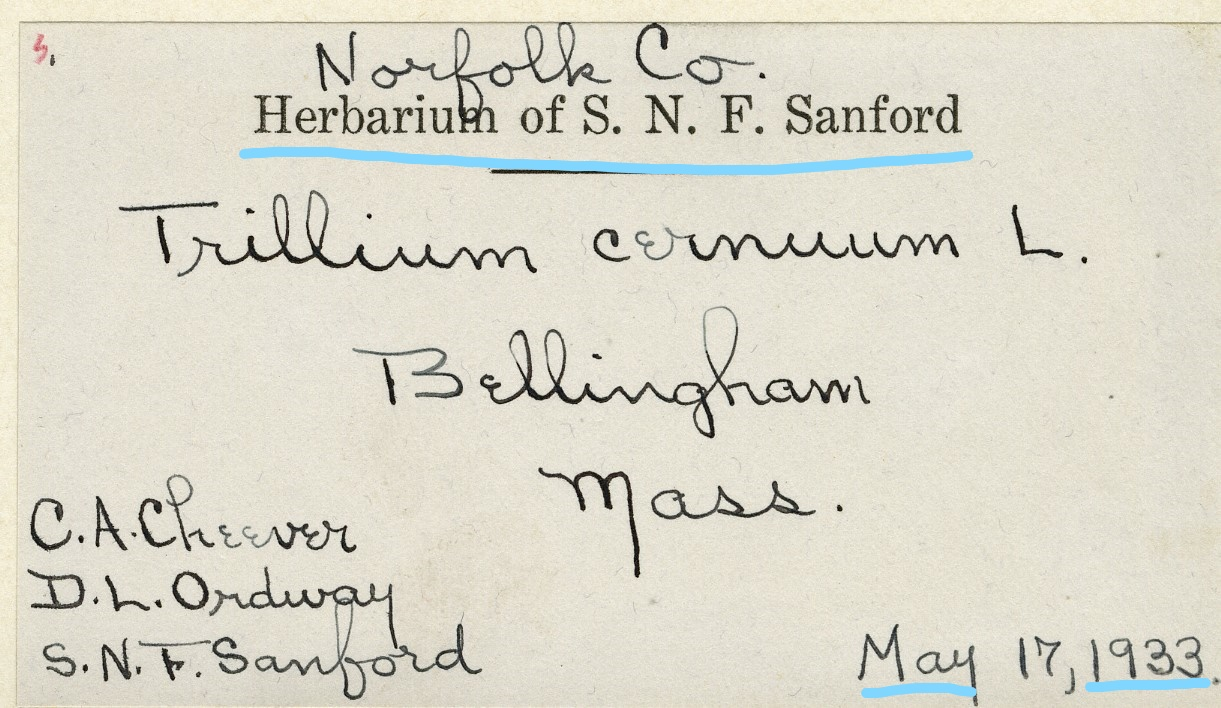 Norfolk Co.
Herbarium of S. N. F. Sanford
Trillium cernuum L.
Bellingham
Mass.
C.A.Cheever
D.L.Ordway
S.N.F.Sanford
May 17, 1933.